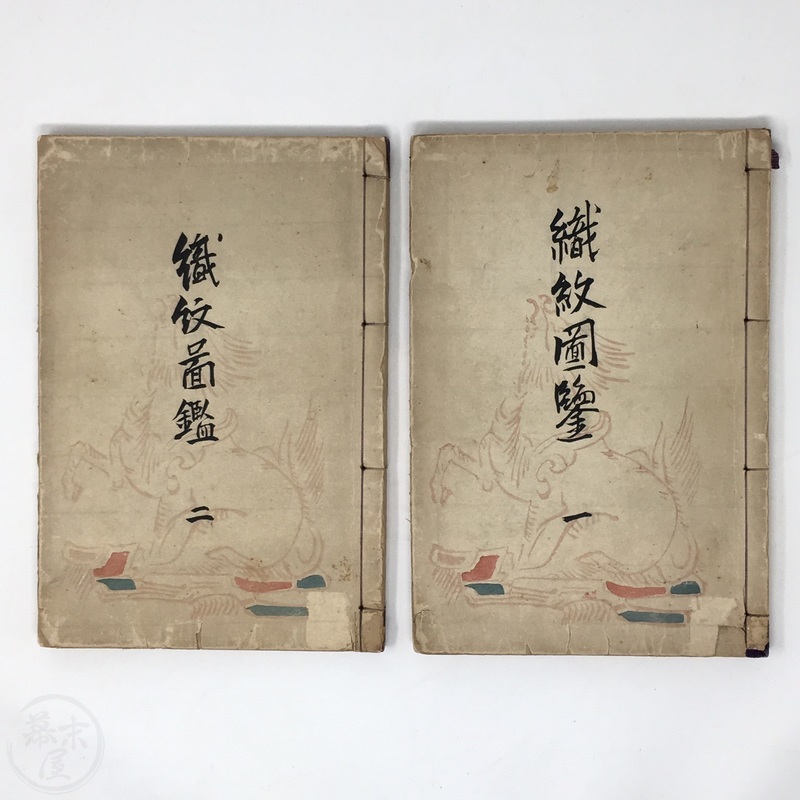 織紋圖鑒
一
織紋圖鑑
二
幕末屋